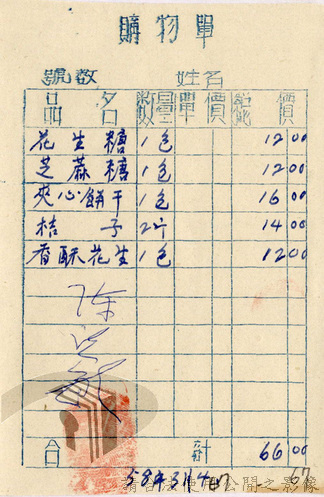 購物單
號數 姓名
品名 數量 單價 總價
花生糖 1包 12 00
芝蔴糖 1包 12 00
夾心餅干 1包 16 00
桔子 2斤 14 00
香酥花生 1包 12 00
合計 66 00
58年3月4日
67